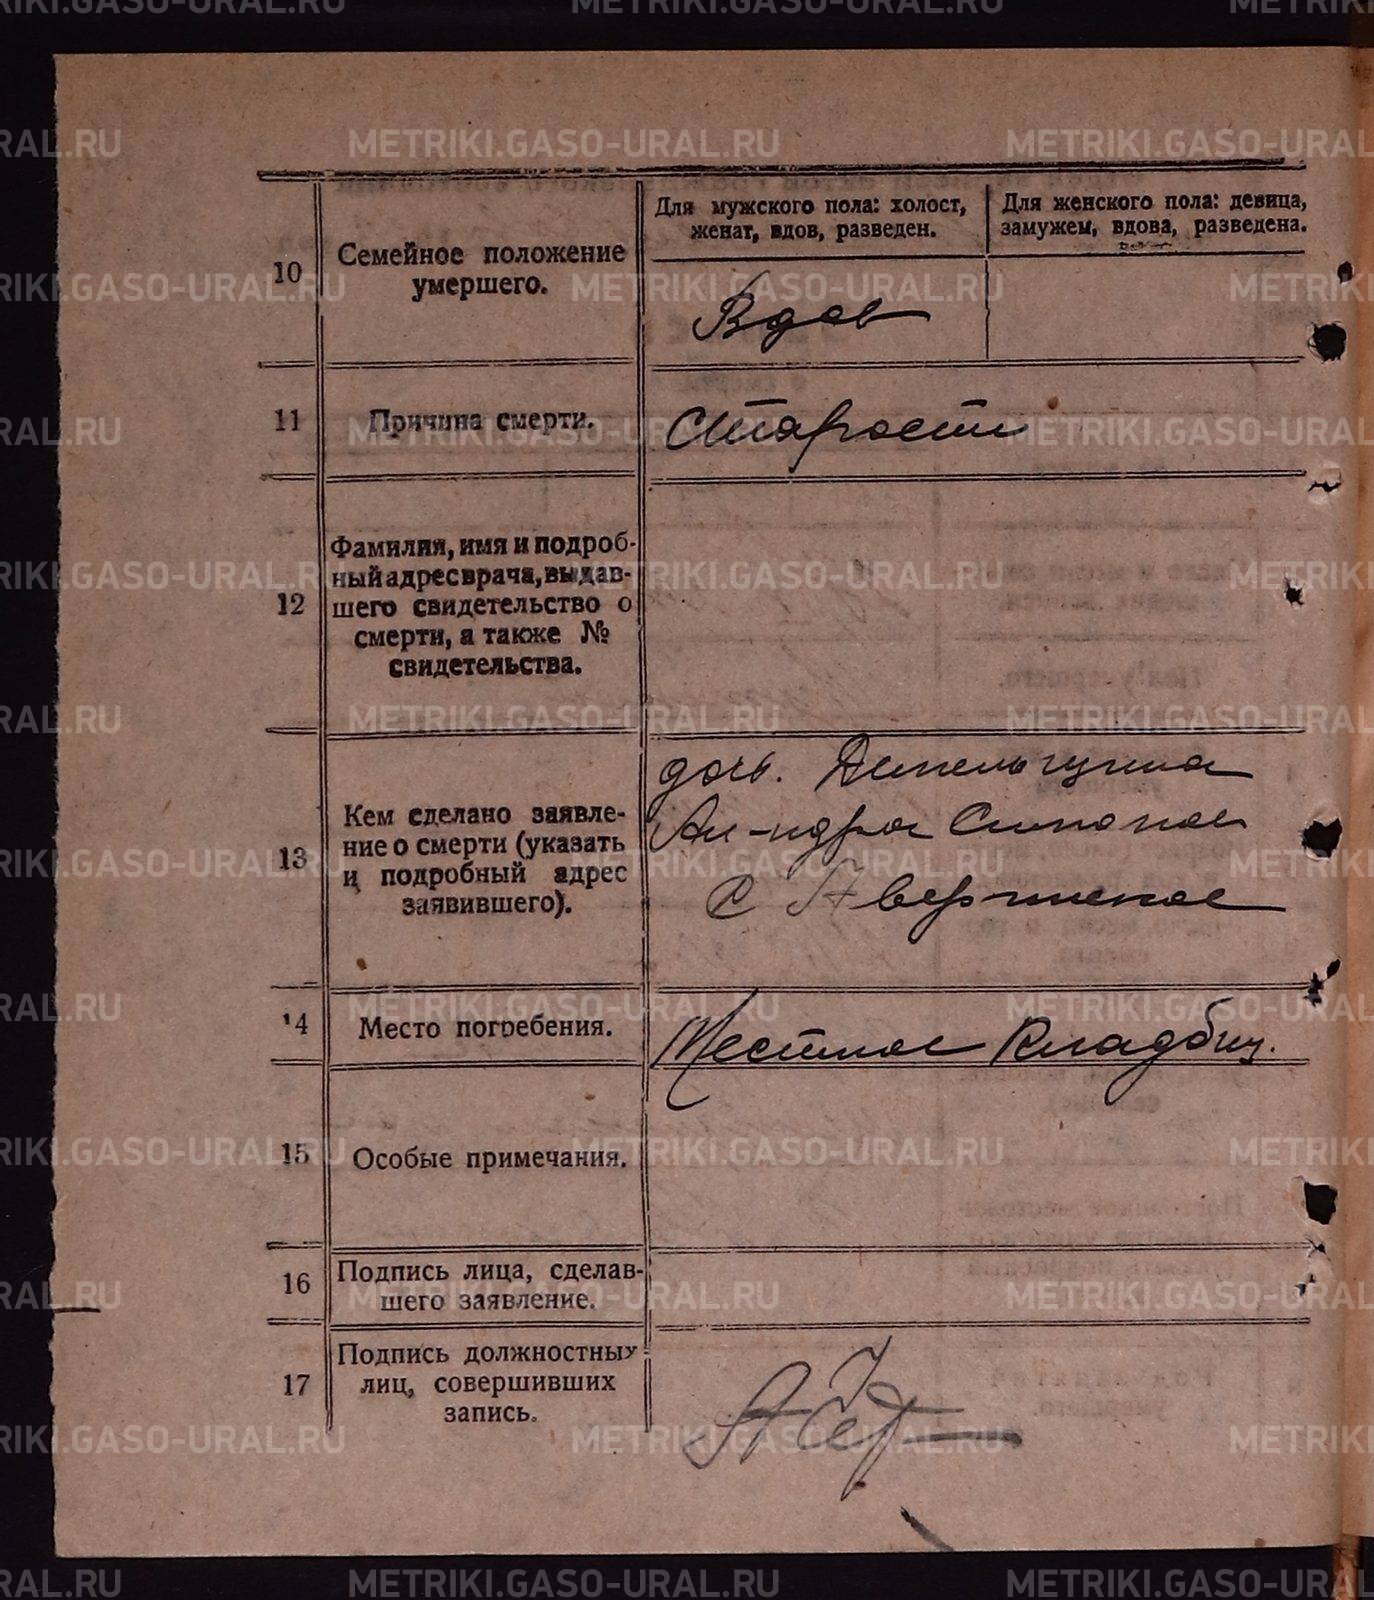 Для мужского пола: холост, женат, вдов, разведен.
Для женского пола: девица, замужем, вдова, разведена.
10
Семейное положение
умершего.
Вдов
11
Причина смерти.
Старости
12
Фамилия, имя и подроб-
ный адрес врача, выдав-
шего свидетельство о
смерти, а также №
свидетельства.
13
Кем сделано заявле-
ние о смерти (указать
и подробный адрес
заявившего).
дочь.
с Аверинское
14
Место погребения.
Местное Кладбищ.
15
Особые примечания.
16
Подпись лица, сделав-
шего заявление.
17
Подпись должностных
лиц, совершивших
запись.
METRIKI.GASO-URAL.RU